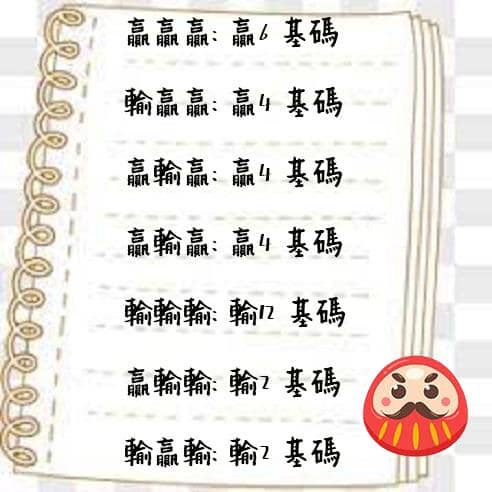 贏贏贏: 贏6 基碼
輸贏贏: 贏4 基碼
贏輸贏: 贏4 基碼
贏輸贏: 贏4 基碼
輸輸輸: 輸12 基碼
贏輸輸: 輸2 基碼
輸贏輸: 輸2 基碼